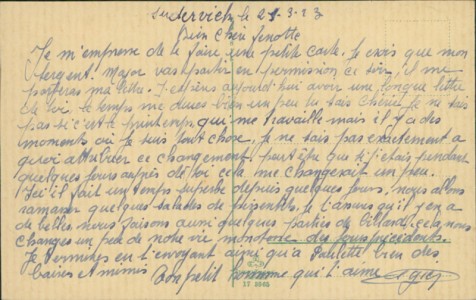 le 21-3-23
Bien Chère Finotte
Je m'empresse de te faire une petite carte. Je crois que mon
sergent Major vas partir en permission ce soir, il me
portera ma lettre. J'espère aujourd'hui avoir une longue lettre
de toi, le temps me dure bien un peu tu sais Chérie je ne sais
pas si c'est le printemps qui me travaille mais il y a des
moments où je suis tout chose, je ne sais pas exactement a
quoi attribuer ce changement, peut être que si j'étais pendant
quelques jours auprès de toi cela me changerait un peu.
Ici il fait un temps superbe depuis quelques jours, nous allons
ramasser quelques salades de pissenlits, je t'assure qu'il y en a
de belles nous faisons aussi quelques parties de billard, cela nous
changes un peu de notre vie monotone des jours précédents.
Je termines en t'envoyant ainsi qu'a Paulette bien des
baises et mimis Ton petit homme qui t'aime